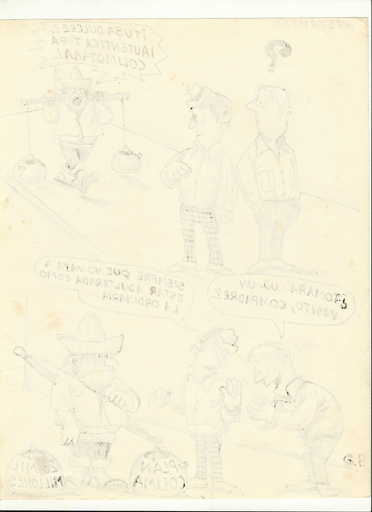 ¡TUBA DULCE!
¡AUTENTICA TUBA
COLIMOTAAA!
?
¿TOMARA UD. UN
VASITO, COMPADRE?
SIEMPRE QUE NO VAYA A
ESTAR ADULTERADA COMO
LA ORDINARIA
PLAN
COLIMA
MIL
MILLONES